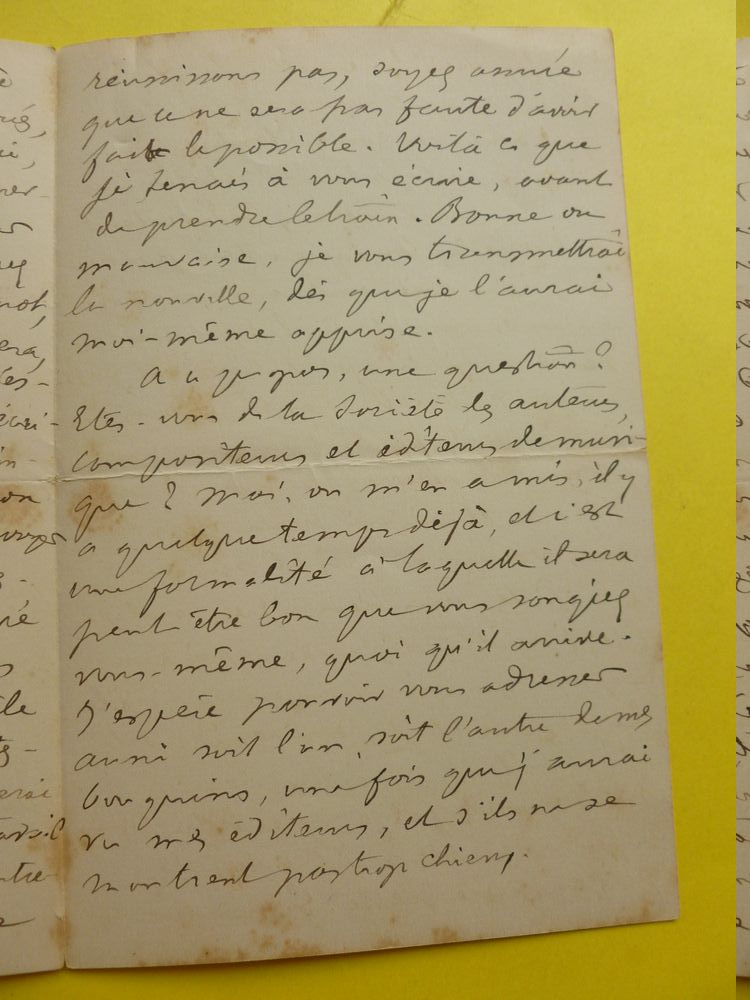 réussissons pas, soyez assurée
que ce ne sera pas faute d'avoir
fait le possible. Voilà ce que
je tenais à vous écrire, avant
de prendre le train. Bonne ou
mauvaise, je vous transmettrai
la nouvelle, dès que je l'aurai
moi-même apprise.
A ce propos, une question?
Etes-vous de la Société des auteurs,
compositeurs et éditeurs de musi-
que? Moi, on m'en a mis, il y
a quelque temps déjà, et c'est
une formalité à laquelle il sera
peut être bon que vous songiez
vous-même, quoi qu'il arrive.
J'espère pouvoir vous adresser
aussi soit l'un, soit l'autre de mes
bouquins, une fois que j'aurai
vu mes éditeurs, et s'ils ne se
montrent pas trop chiens.